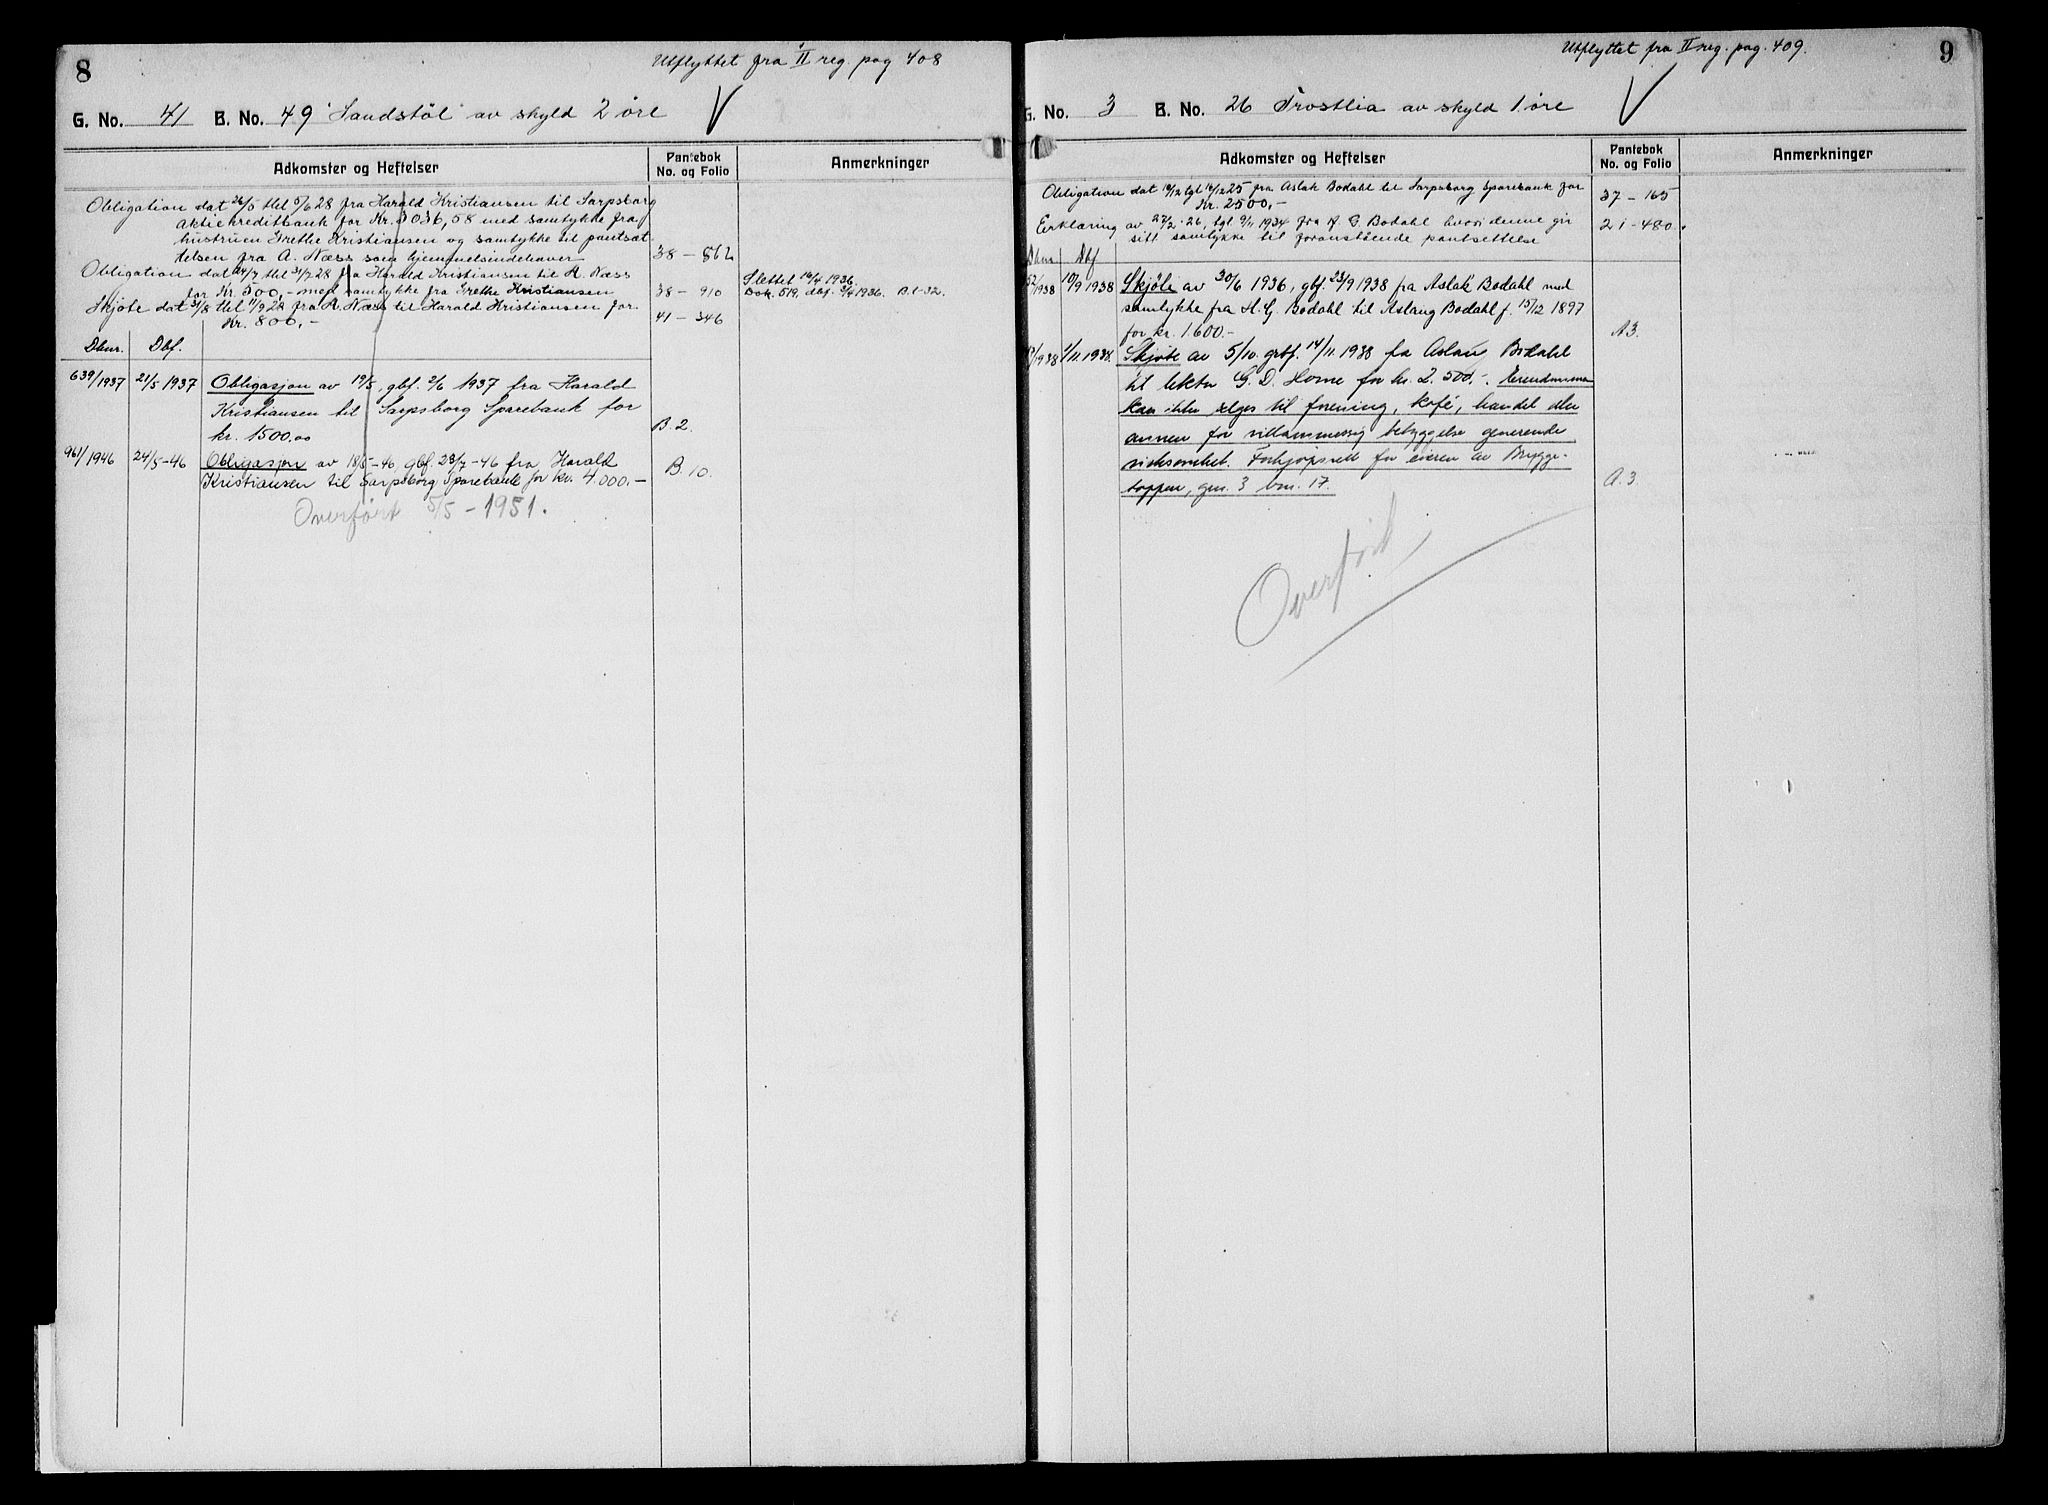 8
Utflyttet fra II reg. pag 408
G. No. 41 B. No. 49 "Sandstöl" av skyld 2 øre
Adkomster og Heftelser
Pantebok
No. og Folio
Anmerkninger
Obligation dat 26/5 thl 5/6 28 fra Harald Kristiansen til Sarpsborg
aktiekreditbank for Kr. 3036,58 med samtykke fra
hustruen Grethe Kristiansen og samtykke til pantsæt
telsen fra A. Næss som hjemmelsindehaver 38 – 862
Obligation dat 24/7 thl 31/7 28 fra Harald Kristiansen til A. Næss
for Kr. 500,- med samtykke fra Grethe Kristiansen 38 – 910
Slettet 16/4 1936
Dok. 519, dbf. 1936. B.1-32.
Skjøte dat 31/8 thl 11/9 28 fra A. Næss til Harald Kristiansen for
Kr. 800,- 41 – 346
Dbnr. Dbf.
639/1937 21/5 1937 Obligasjon av 19/5, gbf. 2/6 1937 fra Harald
Kristiansen til Sarpsborg Sparebank for
kr. 1500.00 B. 2.
961/1946 24/5-46 Obligasjon av 18/5-46, gbf. 23/7-46 fra Harald
Kristiansen til Sarpsborg Sparebank for kr. 4.000.- B 10.
Overført 5/5 – 1951.
Utflyttet fra II reg. pag. 409.
9
G. No. 3 B. No. 26 Trostlia av skyld 1 øre
Adkomster og Heftelser
Pantebok
No. og Folio
Anmerkninger
Obligation dat 14/12 tgl 16/12 25 fra Aslak Bodahl til Sarpsborg Sparebank for
Kr. 2500,- 37 – 165
Erklæring av 27/2 . 26, tgl. 9/11 1934 fra H. G. Bodahl hvori denne gir
sitt samtykke til foranstående pantsettelse 21 – 480.
Dbnr Dbf
/1938 10/9 1938 Skjøte av 30/6 1936, gbf. 23/9 1938 fra Aslak Bodahl med
samtykke fra H. G. Bodahl til Aslaug Bodahl f. 15/12 1897
for kr. 1.600.- A 3.
/1938 1/11 1938. Skjøte av 5/10. gbf. 14/11. 1938 fra Aslaug Bodahl
til lektor G. D. Horne for kr. 2.500,-. Eiendommen
kan ikke selges til forening, kafé, handel eller
annen for villamessig bebyggelse generende
virksomhet. Forkjøpsrett for eieren av Brygge-
toppen, gnr. 3 bnr. 17. A. 3.
Overført